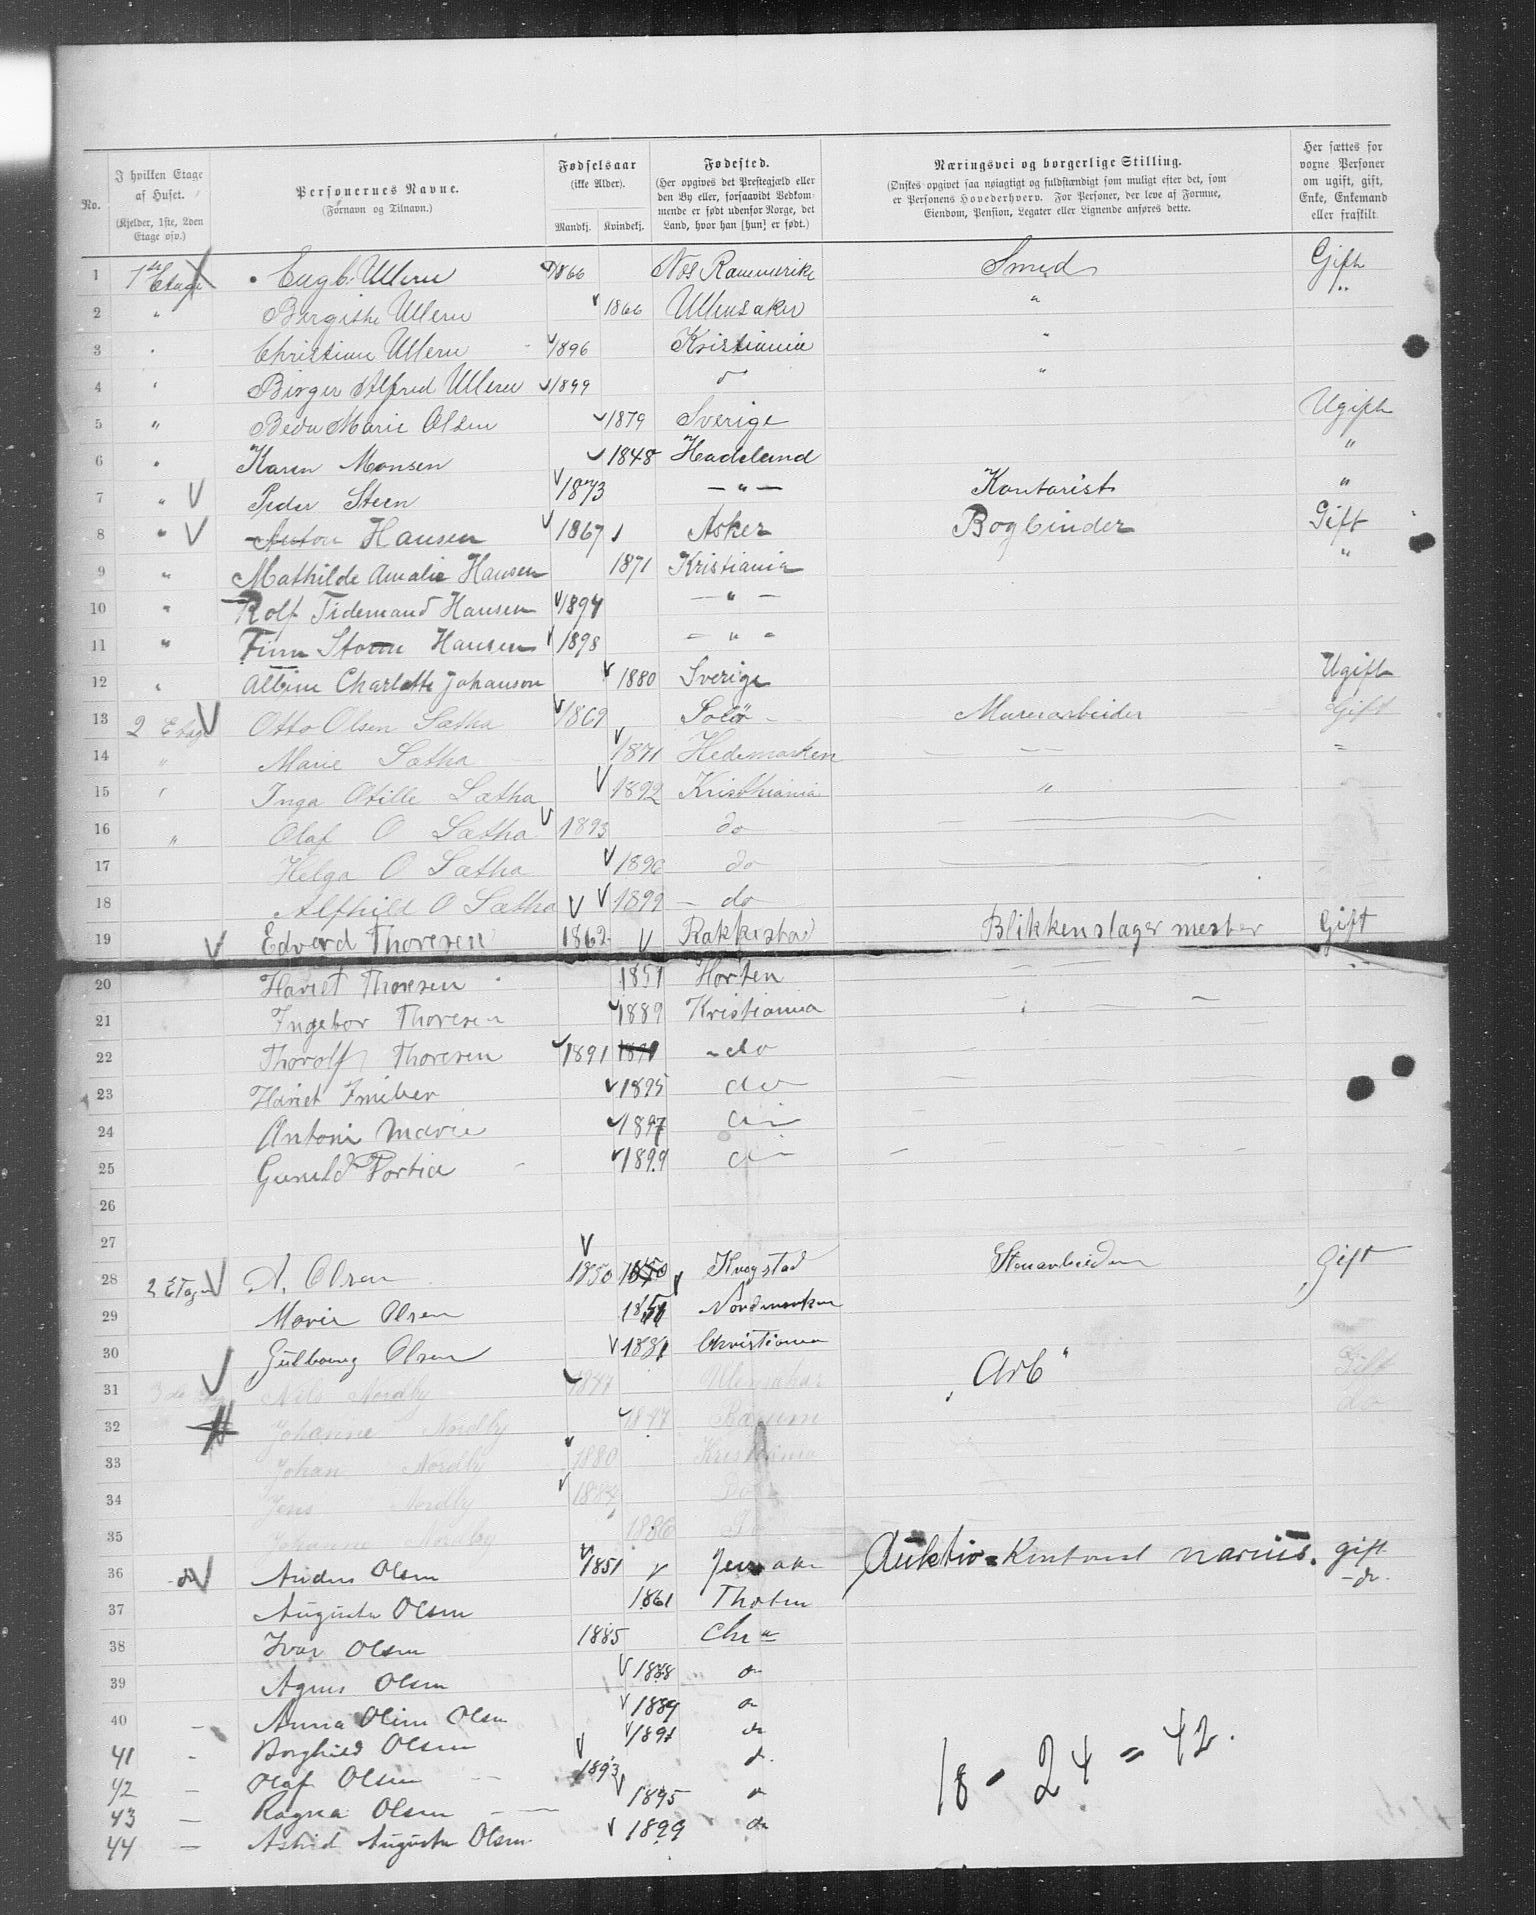 No. | I hvilken Etage af Huset. (Kjelder, 1ste, 2den Etage osv.) | Personernes Navne. (Fornavn og Tilnavn.) | Fødselsaar (ikke Alder). Mandkj. Kvindekj. | Fødested. (Her opgives det Prestegjæld eller den By eller, forsaavidt Vedkommende er født udenfor Norge, det Land, hvor han [hun] er født.) | Næringsvei og borgerlige Stilling. (Ønskes opgivet saa nøiagtigt og fuldstændigt som muligt efter det, som er Personens Hovederhverv. For Personer, der leve af Formue, Eiendom, Pension, Legater eller Lignende anføres dette. | Her sættes for voxne Personer om ugift, gift, Enke, Enkemand eller fraskilt.
1 1ste Etage Engb. Ullern 1866 Nes Rammerike Smed Gift
2 " Birgithe Ullern 1866 Ullensaker " "
3 " Christian Ullern 1896 Kristiania "
4 " Birger Alfred Ullern 1899 do "
5 " Beda Marie Olsen 1879 Sverige Ugift
6 " Karen Monsen 1848 Hadeland "
7 " Peder Steen 1873 — " — Kontorist "
8 " Anton Hansen 1867 Asker Bogbinder Gift
9 " Mathilde Amalie Hansen 1871 Kristiania "
10 " Rolf Tidemand Hansen 1894 — " —
11 " Finn Storm Hansen 1898 — " —
12 " Albine Charlotte Johanson 1880 Sverige Ugift
13 2 Etage Otto Olsen Sætha 1869 Solør Murerarbeider Gift
14 " Marie Sætha 1871 Hedemarken "
15 " Inga Otille Sætha 1892 Kristhiania "
16 " Olaf O Sætha 1893 do
17 Helga O Sætha 1896 do
18 Alfhild O Sætha 1899 do
19 Edvard Thoresen 1862 Rakkestad Blikkenslager mester Gift
20 Hariet Thoresen 1851 Horten
21 Ingebor Thoresen 1889 Kristiania
22 Thorolf Thoresen 1891 1891 do
23 Hariet 1895 do
24 Antoni Marie 1897 do
25 Portia 1899 do
26
27
28 2 Etage A. Olsen 1850 1850 Krogstad Stenarbeider Gift
29 Marie Olsen Nordmarken
30 Gulborg Olsen 1881 Christiania
31 3de Etg Nils Nordby 1847 Ullensaker „Arb" Gift
32 Johanne Nordby 1847 Bærum do
33 Johan Nordby 1880 Kristiania
34 Jens Nordby 1884 Do
35 Johanne Nordby 1886 Do
36 do Anders Olsen 1851 Auktio= gift
37 Augusta Olsen 1861 Thoten do
38 Ivar Olsen 1885 Chr a
39 Agnes Olsen 1888 do
40 — Anna Oline Olsen 1889 do
41 — Borghild Olsen 1891 do
42 — Olaf Olsen 1893 do
43 — Ragna Olsen 1895 do
44 — Astrid Augusta Olsen 1899 do
18 - 24 = 42.